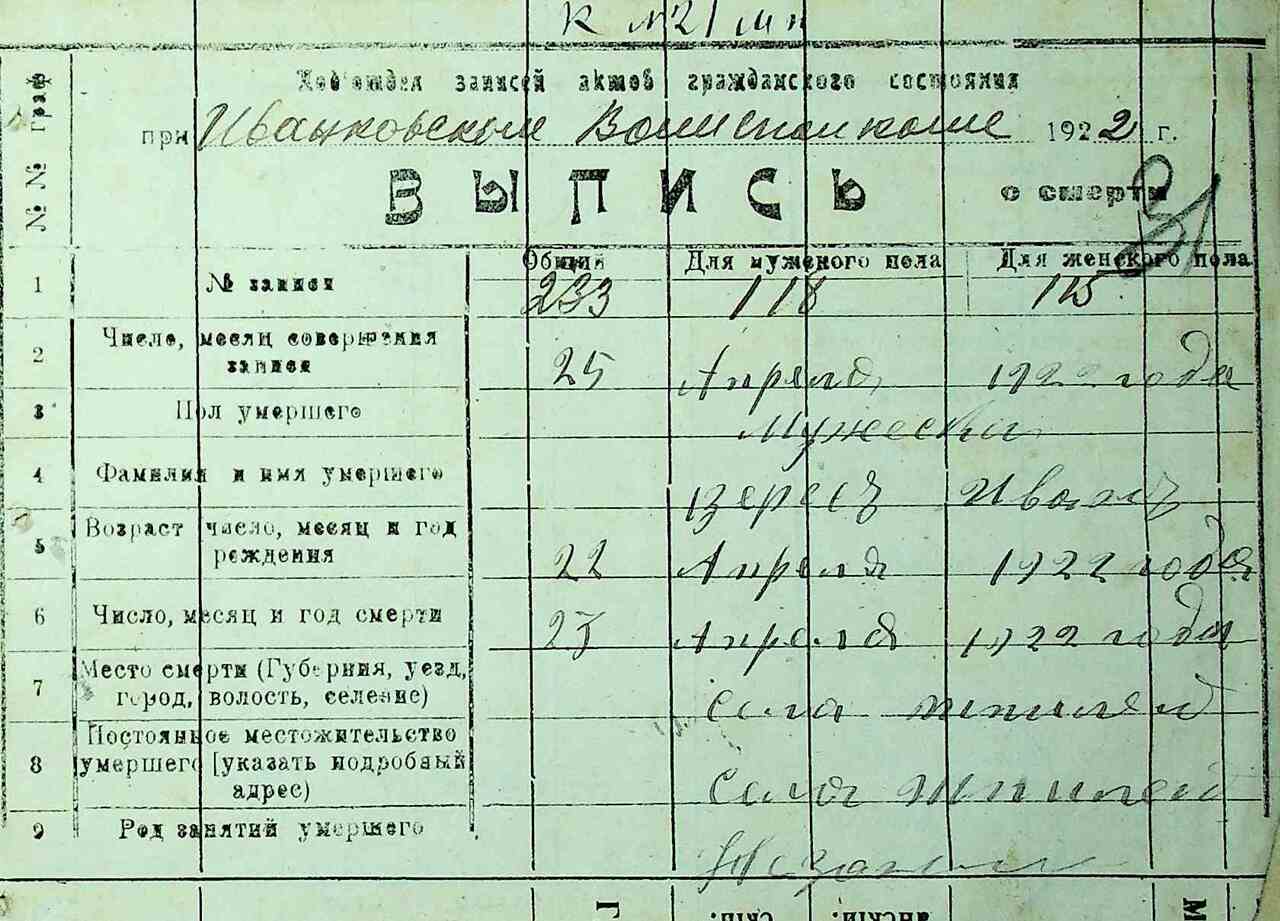 К №21
№№ граф
Подотдел записей актов гражданского состояния
при Иванковском Волисполкоме 1922 г.
ВЫПИСЬ о смерти
31
Общий Для мужского пола Для женского пола
1 № записи 233 118 115
2 Число, месяц совершения записи 25 Апреля 1922 года
3 Пол умершего Мужеска
4 Фамилия и имя умершего Иванъ
5 Возраст число, месяц и год рождения 22 Апреля 1922 года
6 Число, месяц и год смерти 25 Апреля 1922 года
7 Место смерти (Губерния, уезд, город, волость, селение) село
8 Постоянное местожительство умершего [указать подробный адрес) село
9 Род занятий умершего